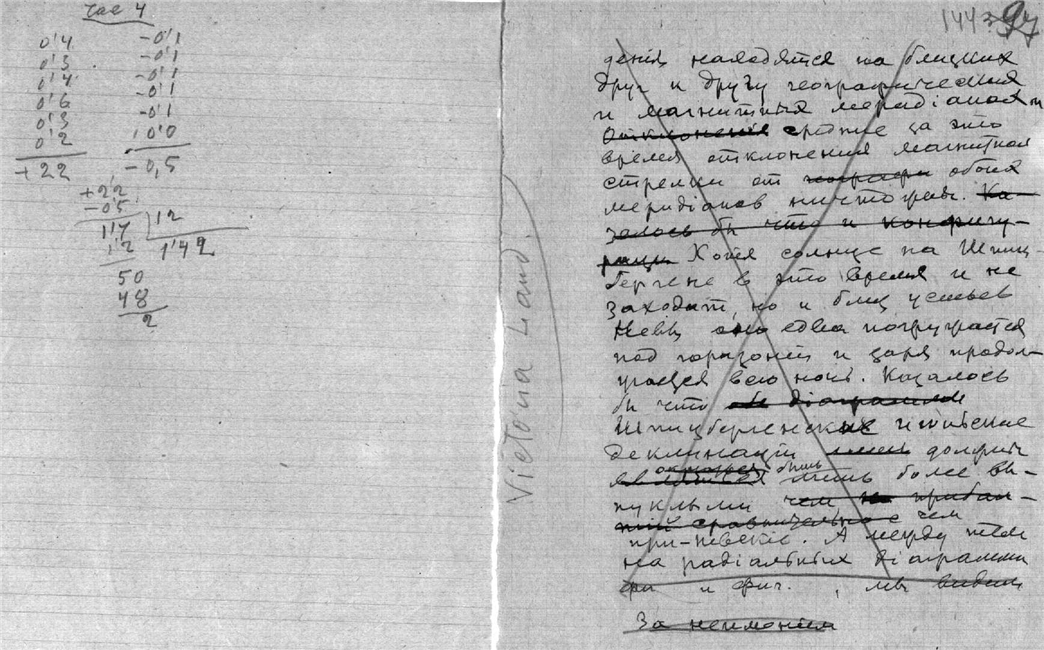 Час 4
0'4 -0'1
0'3 -0'1
0'4 -0'1
0'6 -0'1
0'3 -0'1
0'2 0'0
+22 -0,5
+22
-05
17 12
12 1'42
50
48
2
Victoria Land.
1443 97
денiя находятся на близких
друг к другу географических
и магнитных меридiанах и
отклоненiя средние за это
время отклонения магнитной
стрелки от обоих
меридiанов ничтожны. Ка-
залось бы что и конфигу-
рации Хотя солнце на Шпиц-
бергене в это время и не
заходит, но и близ устьев
Невы оно едва погружается
под горизонт и заря продол-
жается всю ночь. Казалось
бы что дiаграммы
Шпицбергенские
деклинации должны
быть лишь более вы-
пуклыми чем
сравнительно с чем
при-невские. А между тем
на радiальных дiаграммах
фиг и фиг. , мы видим
За неименiем